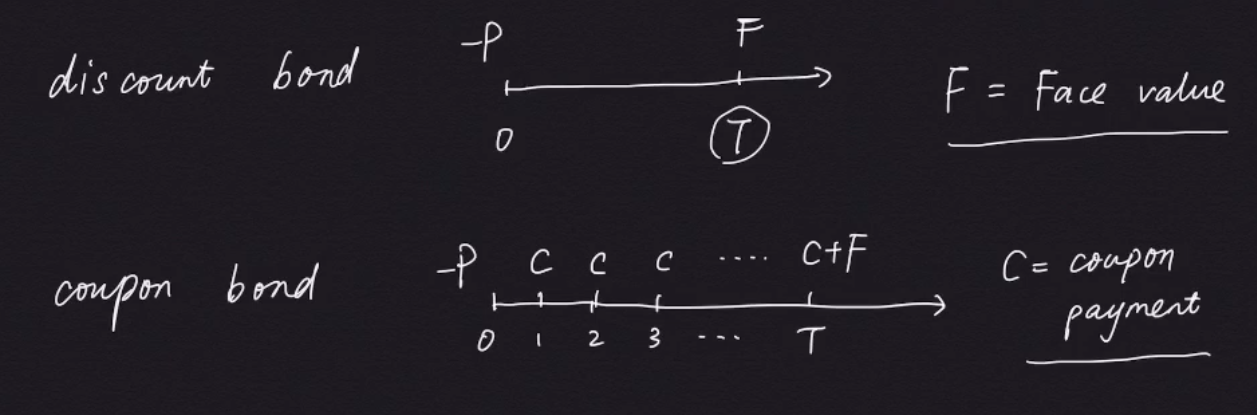 discount bond
-P F
0 T
F = Face value
coupon bond
-P C C C .... C+F
0 1 2 3 ... T
C = coupon
payment